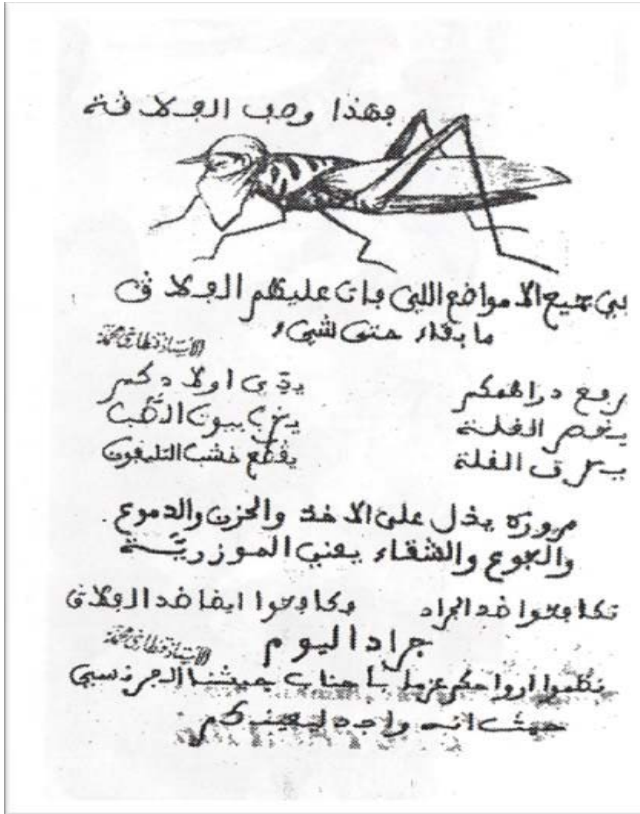 فهذا وصف الفلاقة
في جميع الامواضع اللي فات عليهم الفلاق
ما بقاء حتى شيء
الاستاذ محمد
يرفع دراهمكم اولادكم
الغلة الطب
يحرق الغلة يقطع خشب التليفون
مروره يدل على الاخذ والحزن والدموع
والجوع والشقاء يعني الموزرية
تكافحوا ضد الجراد فكافحوا ايضا ضد الفلاق
جراد اليوم
الاستاذ محمد
نظموا ارواحكم بأجناب جيشنا الفرنسي
حيث انه واجد ليعينكم